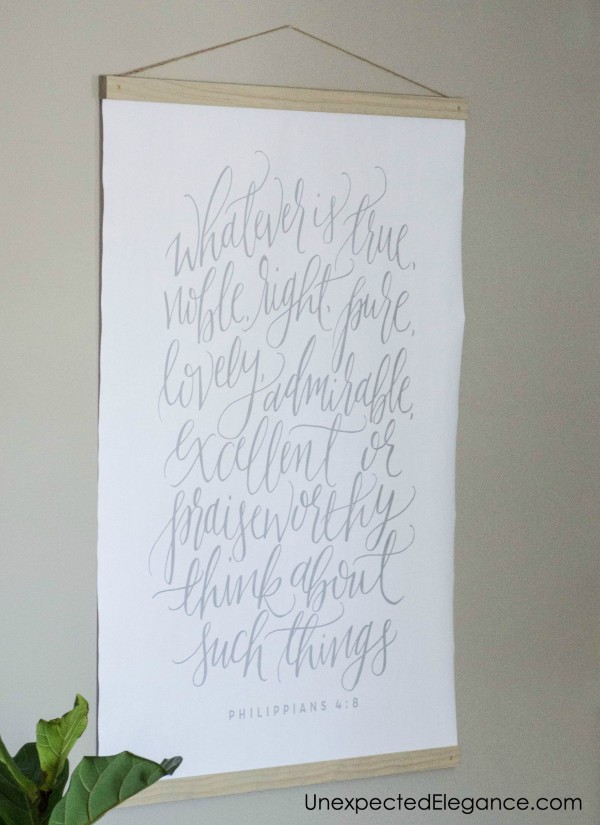 whatever is true,
noble, right, pure,
lovely, admirable,
excellent or
praiseworthy
think about
such things
PHILIPPIANS 4:8
UnexpectedElegance.com